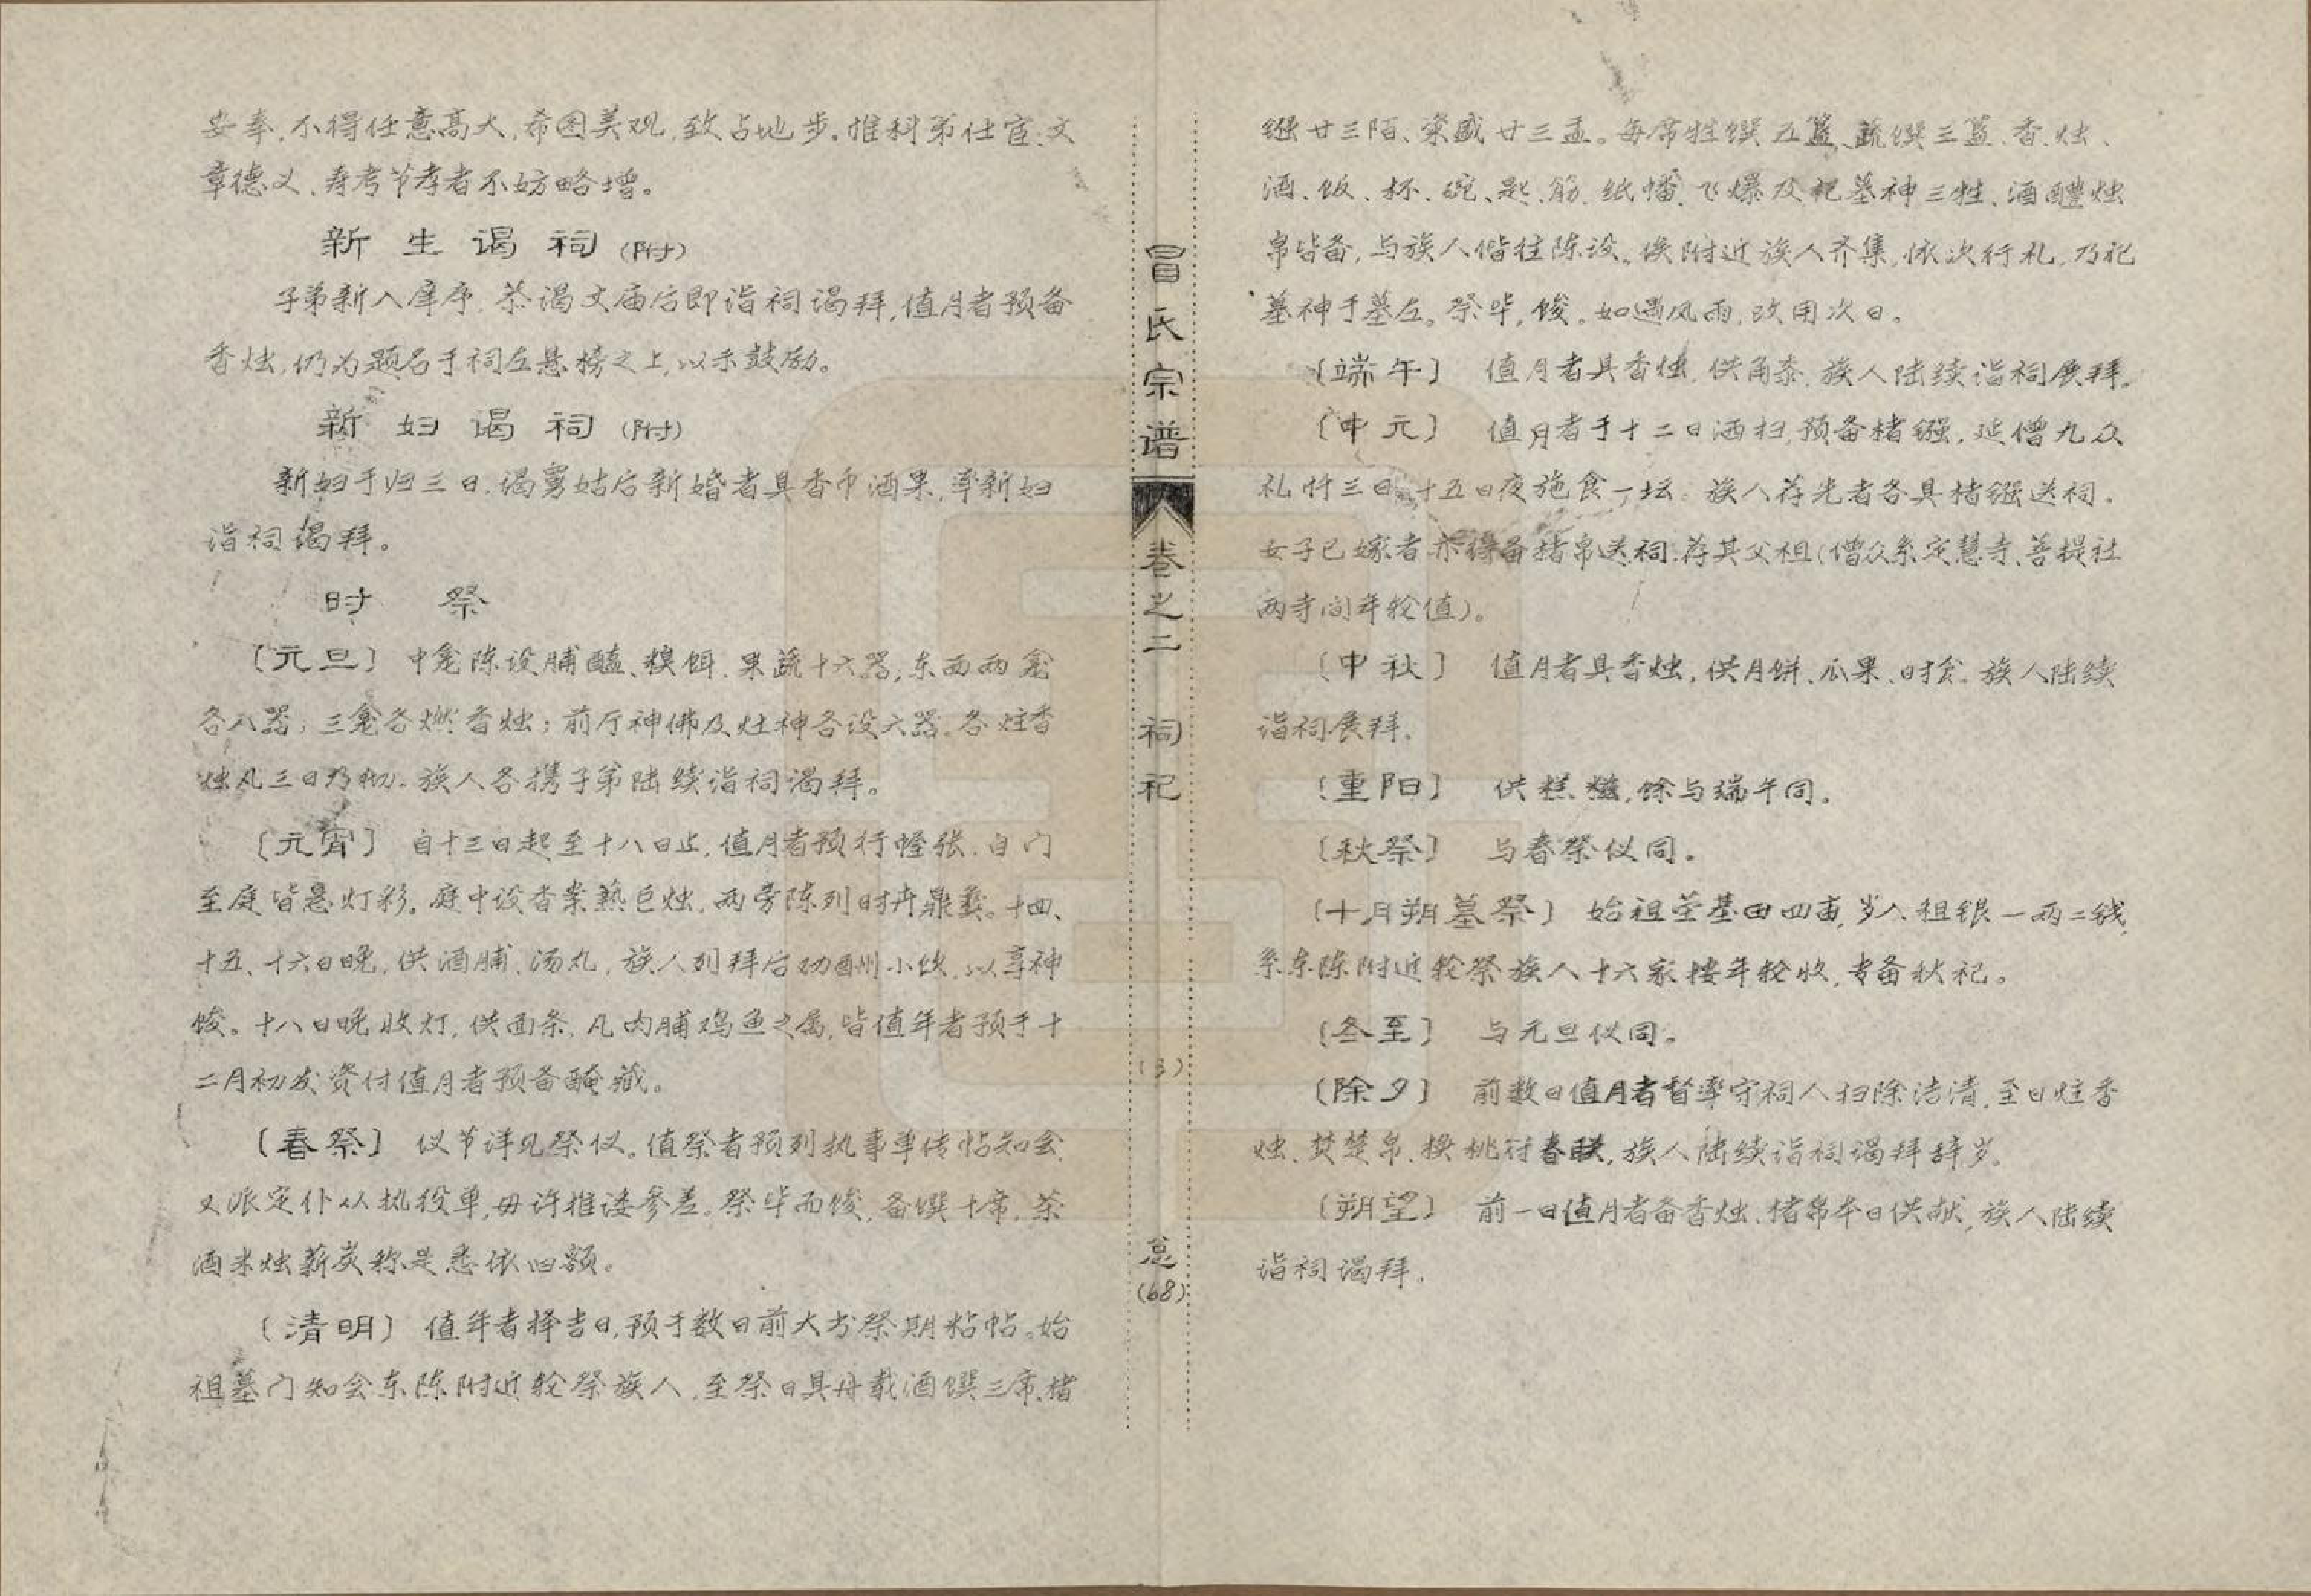 安奉，不得任意高大，希图美观，致占地步。惟科第仕宦、文
章德义、寿考节孝者不妨略增。
新生谒祠（附）
子弟新入庠序，恭谒文庙后即诣祠谒拜，值月者预备
香烛，仍为题名于祠左悬榜之上，以示鼓励。
新妇谒祠（附）
新妇于归三日，谒舅姑后新婚者具香巾酒果，率新妇
诣祠谒拜。
时祭
〔元旦〕 中龛陈设脯醢、糗饵、果蔬十六器，东西两龛
各八器；三龛各燃香烛；前厅神佛及灶神各设六器。各炷香
烛凡三日乃彻。族人各携子弟陆续诣祠谒拜。
〔元宵〕 自十三日起至十八日止，值月者预行幄张，自门
至庭皆悬灯彩。庭中设香案热巨烛，两旁陈列时卉鼎彝。十四、
十五、十六日晚，供酒脯、汤丸，族人列拜后劝酬小饮，以享神
馂。十八日晚收灯，供面条，凡肉脯鸡鱼之属，皆值年者预于十
二月初发资付值月者预备醃藏。
〔春祭〕 仪节详见祭仪。值祭者预列执事单传帖知会，
又派定仆从执役单，毋许推诿参差。祭毕而馂，备馔十席，茶
酒米烛薪炭称是悉依旧额。
〔清明〕 值年者择吉日，预于数日前大书祭期粘帖。始
祖墓门知会东陈附近轮祭族人，至祭日具舟载酒馔三席、楮
镪廿三陌、粢盛廿三盂。每席牲馔五簋、蔬馔三簋、香、烛、
酒、饭、杯、碗、匙、筯、纸幡、飞爆及祀墓神三牲、酒醴烛
帛皆备，与族人偕往陈设。俟附近族人齐集，依次行礼，乃祀
墓神于墓左。祭毕，馂。如遇风雨，改用次日。
〔端午〕 值月者具香烛，供角黍，族人陆续诣祠展拜。
〔中元〕 值月者于十二日洒扫，预备楮镪，延僧九众
礼忏三日，十五日夜施食一坛。族人荐先者各具楮镪送祠。
女子已嫁者亦得备楮帛送祠荐其父祖（僧众系定慧寺、菩提社
两寺间年轮值）。
〔中秋〕 值月者具香烛，供月饼、瓜果、时食。族人陆续
诣祠展拜。
〔重阳〕 供糕糍，馀与端午同。
〔秋祭〕 与春祭仪同。
〔十月朔墓祭〕 始祖茔基田四亩，岁入租银一两二钱，
系东陈附近轮祭族人十六家挨年轮收，专备秋祀。
〔冬至〕 与元旦仪同。
〔除夕〕 前数日值月者督率守祠人扫除洁清，至日炷香
烛、焚楚帛、换桃符春联，族人陆续诣祠谒拜辞岁。
〔朔望〕 前一日值月者备香烛、楮帛本日供献，族人陆续
诣祠谒拜。
冒氏宗谱
卷之二
祠祀
（3）
总
（68）